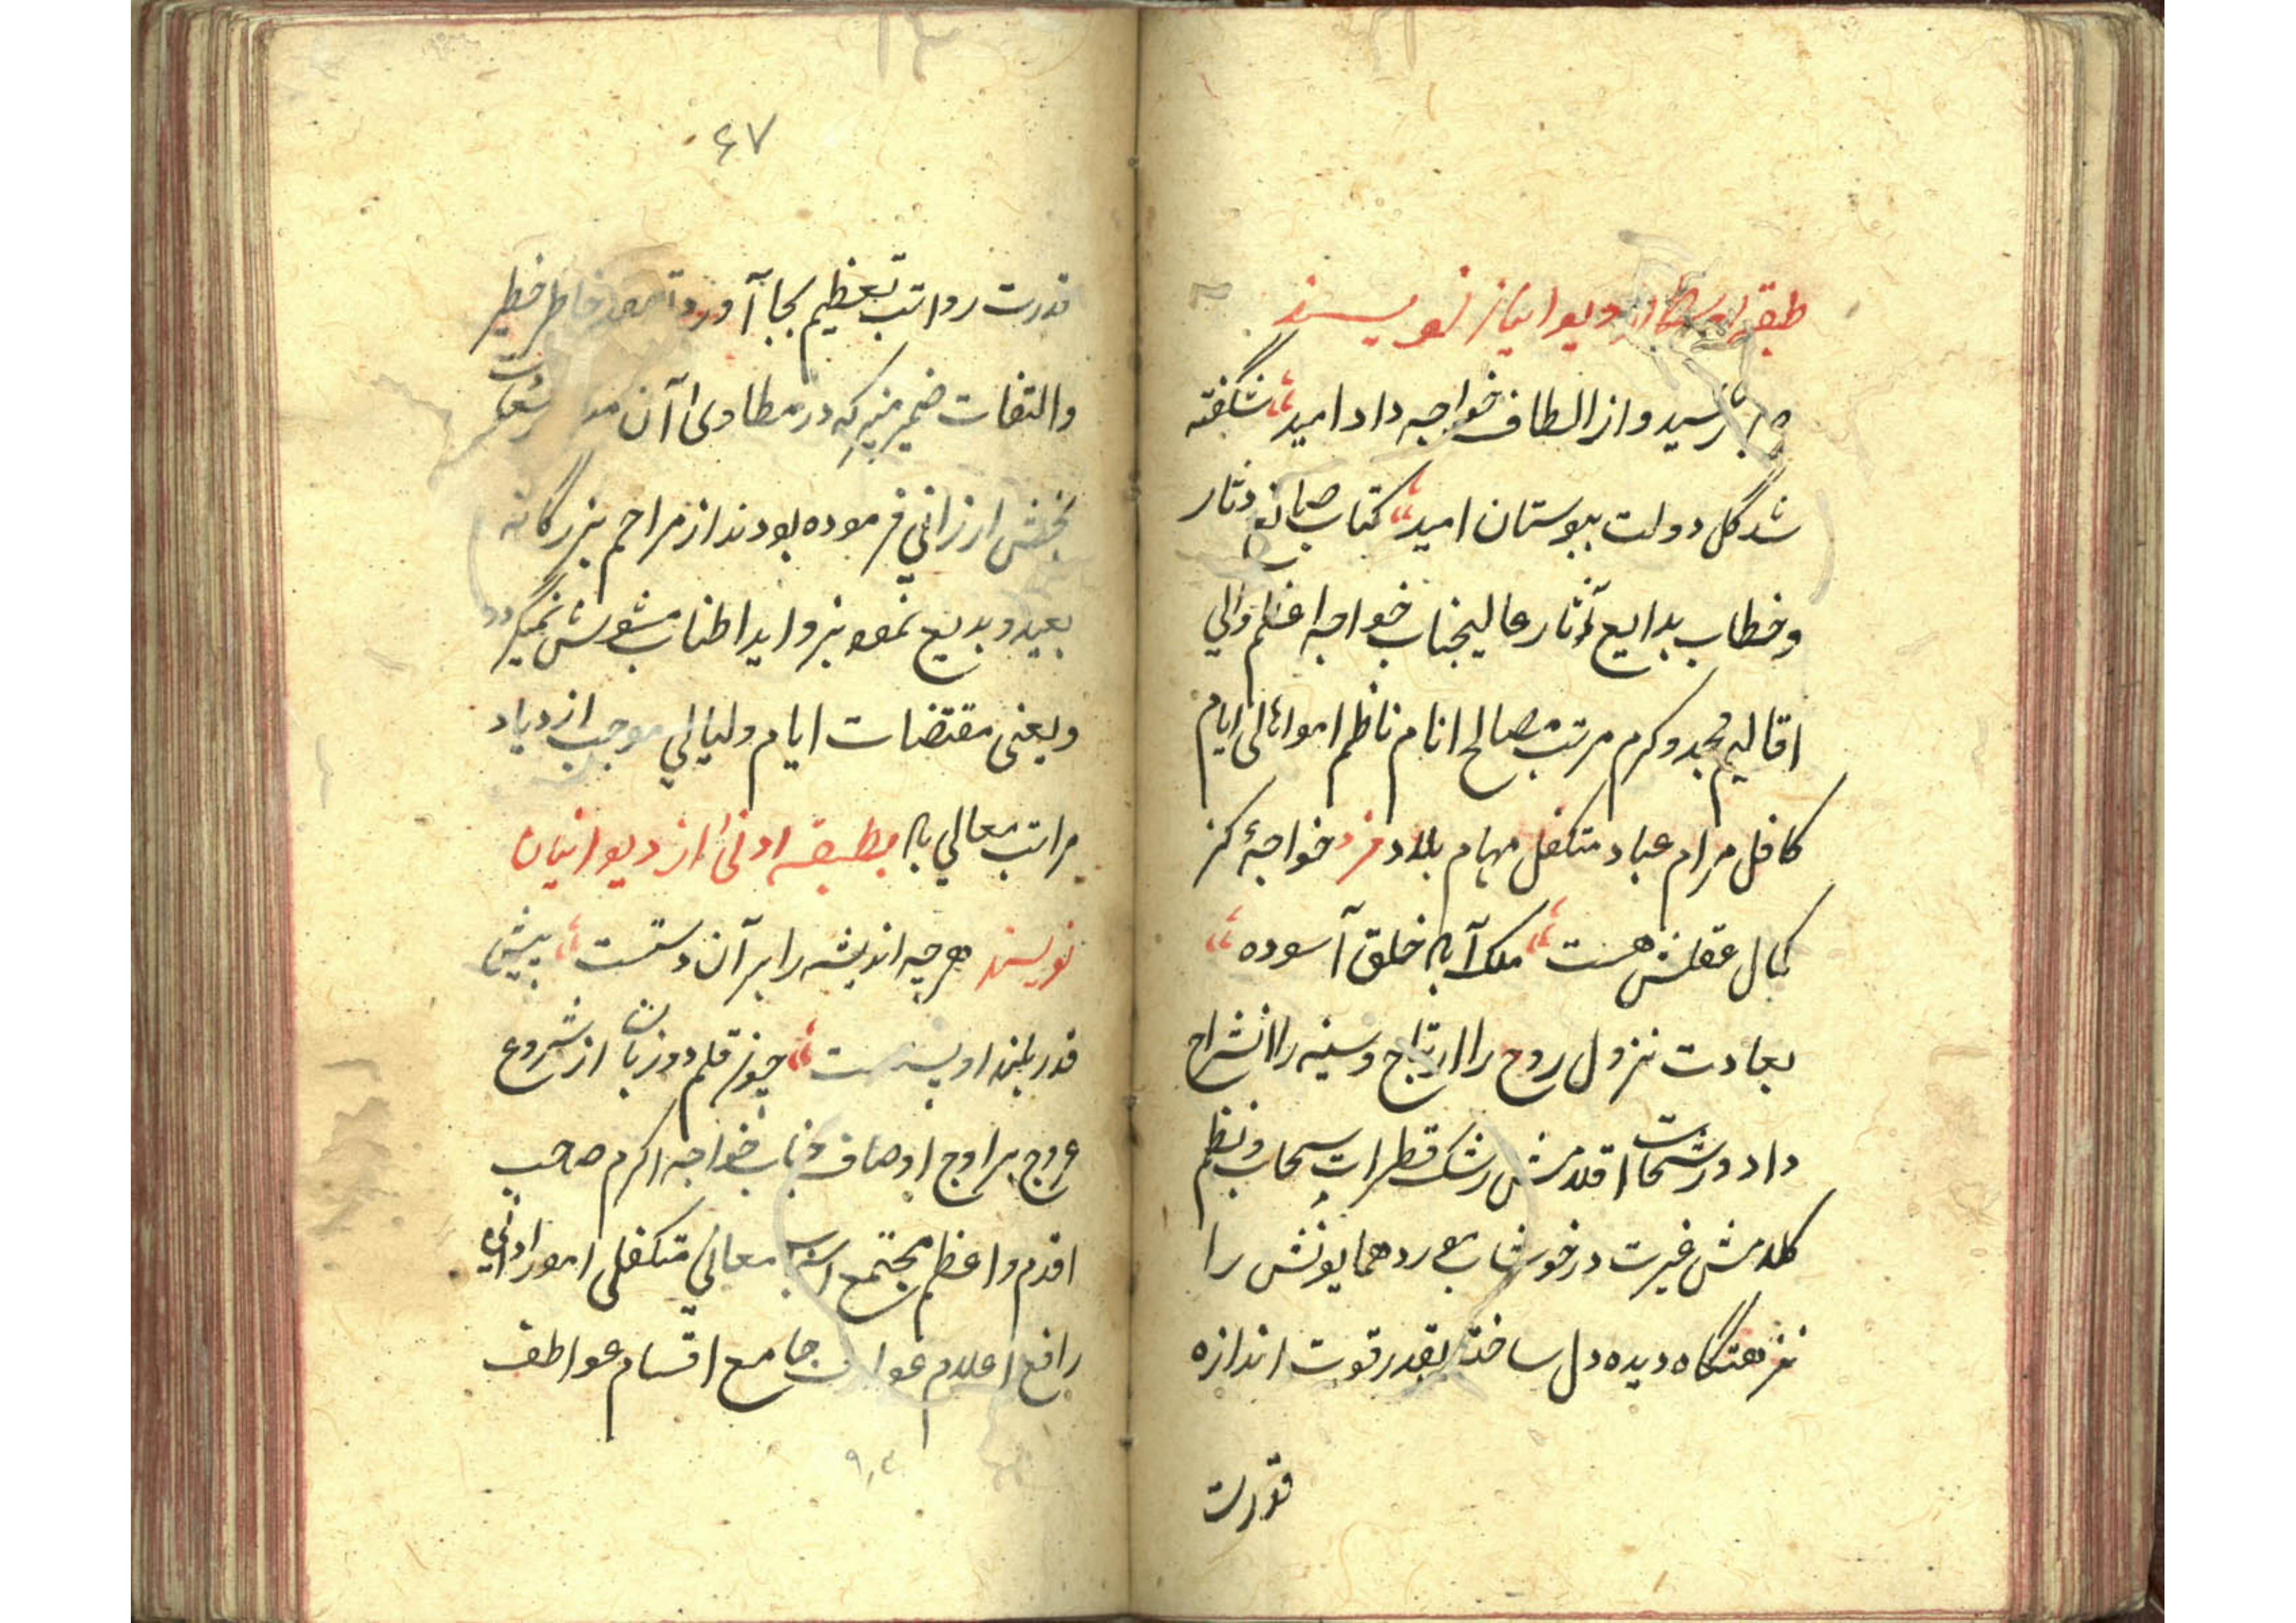 طبقه اوسط از دیوانیان نویسند
رسید و از الطاف خواجه داد امید شگفته
شد گل دولت ببوستان امید کتاب صنایع دثار
و خطاب بدایع آثار عالیجناب خواجه اعظم والی
اقالیم مجد و کرم مرتب مصالح انام ناظم امور اهالی ایام
کافل مرام عباد متکفل مهام بلاد فرد خواجهٔ کز
کمال عقلش هست ملک آباد خلق آسوده
نزول روح را ارتیاح و سینه را انشراح
داد و رشحات اقلامش رشک قطرات سحاب و نظم
کلامش غیرت در خوشاب همایونش را
نزهتگاه دیده دل ساخته بقدر قوت اندازه
قدرت
۶۷
قدرت رواتب تعظیم بجا آورد خاطر خطیر
والتفات ضمیر منیر که در مطاوی آن
بخش ارزانی فرموده بودند از مراحم بزرگانه
بعید و بدیع ننمود بزواید اطناب مشوش نمیگردد
و یعنی مقتضات ایام و لیالی موجب ازدیاد
مراتب معالی باد بطبقه ادنی از دیوانیان
نویسند هرچه اندیشه را بر آن دستست پیش
قدر بلند او پستست چون قلم دو زبان از شروع
عروج بر اوج اوصاف جناب خواجه اکرم صاحب
اقدم و اعظم مجتمع اسباب معالی متکفل امور
رافع اعلام عوارف جامع اقسام عواطف